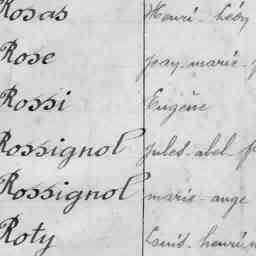 Rosas Henri - Léon
Rose Jean - marie -
Rossi Eugène
Rossignol Jules - abel -
Rossignol marie - ange
Roty Louis - henri